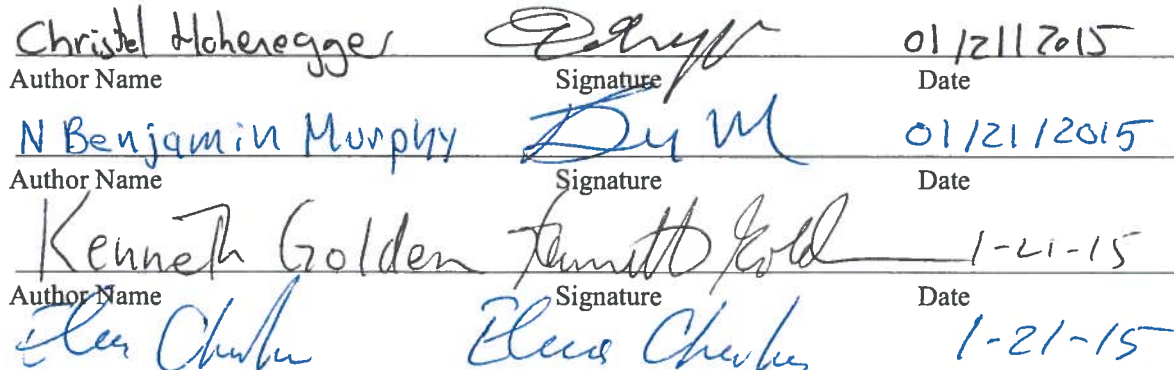 Christel Hohenegger 01/21/2015
Author Name Signature Date
N Benjamin Murphy 01/21/2015
Author Name Signature Date
Kenneth Golden Kenneth Gold 1-21-15
Author Name Signature Date
Elena 1-21-15